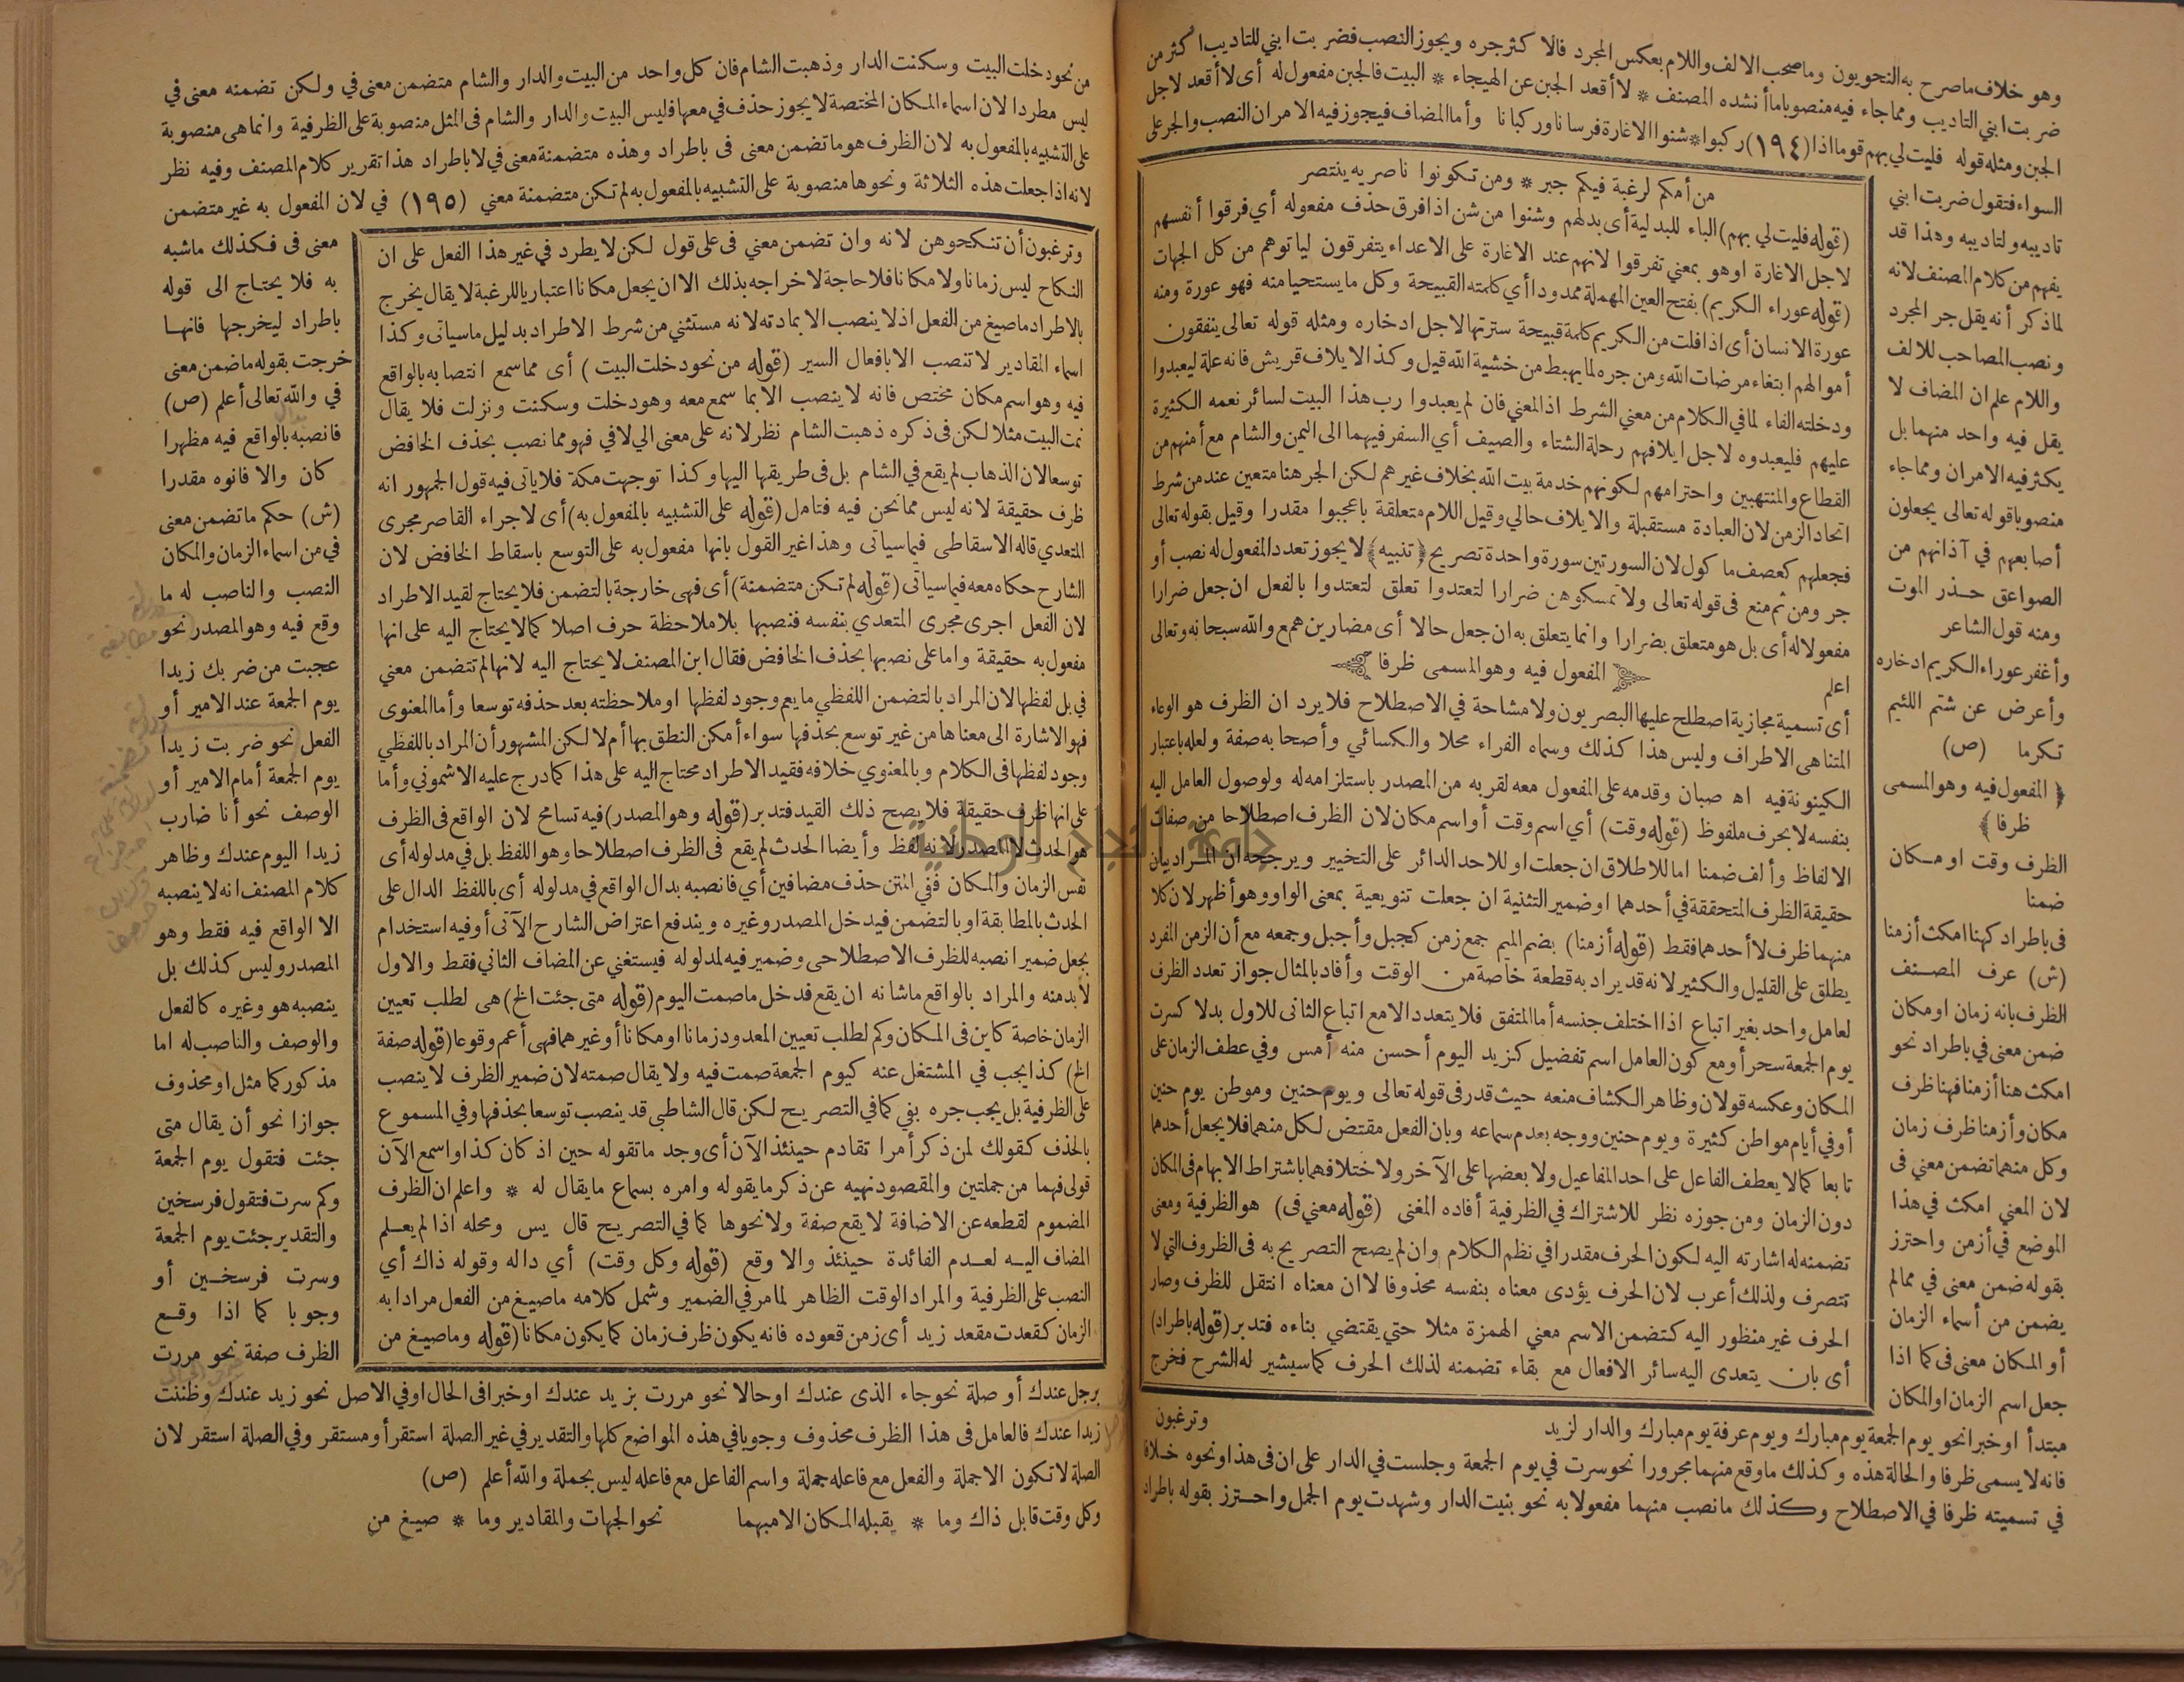 وهو خلاف ماصرح به النحويون وما صحب الالف واللام بعكس المجرد فالا كثرجره ويجوز النصب فضربت ابني للتاديب اكثر من
ضربت ابني التاديب ومما جاء فيه منصوبا ما أنشده المصنف * لا أقعد الجبن عن الهيجاء * البيت فالجبن مفعول له أى لا أقعد لاجل
الجبن ومثله قوله فليت لي بهم قوما اذا (١٩٤) ركبوا * شنوا الاغارة فرسانا وركبانا وأما المضاف فيجوز فيه الامران النصب والجر على
السواء فتقول ضربت ابني
تاديبه ولتاديبه وهذا قد
يفهم من كلام المصنف لانه
لماذكر أنه يقل جر المجرد
ونصب المصاحب للالف
واللام علم ان المضاف لا
يقل فيه واحد منهما بل
يكثر فيه الامران ومما جاء
منصوبا قوله تعالى يجعلون
أصابعهم في آذانهم من
الصواعق حذر الموت
ومنه قول الشاعر
وأغفر عوراء الكريم ادخاره
وأعرض عن شتم اللئيم
تكرما (ص)
﴿ المفعول فيه وهو المسمى
ظرفا ﴾
الظرف وقت او مكان
ضمنا
فى باطراد كهنا امكث أزمنا
(ش) عرف المصنف
الظرف بانه زمان او مكان
ضمن معنى في باطراد نحو
امكث هنا أزمنا فهنا ظرف
مكان وأزمنا ظرف زمان
وكل منهما تضمن معنى فى
لان المعني امكث في هذا
الموضع في أزمن واحترز
بقوله ضمن معنى في ممالم
يضمن من أسماء الزمان
أو المكان معنى فى كما اذا
جعل اسم الزمان او المكان
من أمكم لرغبة فيكم جبر * ومن تكونوا ناصريه ينتصر
(قوله فليت لي بهم) الباء للبدلية أى بدلهم وشنوا من شن اذا فرق حذف مفعوله أي فرقوا أنفسهم
لاجل الاغارة او هو بمعني تفرقوا لانهم عند الاغارة على الاعداء يتفرقون لياتوهم من كل الجهات
(قوله عوراء الكريم) بفتح العين المهملة ممدودا أي كلمته القبيحة وكل ما يستحيا منه فهو عورة ومنه
عورة الانسان أى اذا فلت من الكريم كلمة قبيحة سترتها لاجل ادخاره ومثله قوله تعالى ينفقون
أموالهم ابتغاء مرضات الله ومن جره لما يهبط من خشية الله قيل وكذا لايلاف قريش فانه علة ليعبدوا
ودخلته الفاء لما في الكلام من معني الشرط اذ المعني فان لم يعبدوا رب هذا البيت لسائر نعمه الكثيرة
عليهم فليعبدوه لاجل ايلافهم رحلة الشتاء والصيف أي السفر فيهما الى اليمن والشام مع أمنهم من
القطاع والمنتهبين واحترامهم لكونهم خدمة بيت الله بخلاف غيرهم لكن الجر هنا متعين عند من شرط
اتحاد الزمن لان العبادة مستقبلة والايلاف حالي وقيل اللام متعلقة باعجبوا مقدرا وقيل بقوله تعالى
فجعلهم كعصف ما كول لان السورتين سورة واحدة تصريح ﴿تنبيه﴾ لا يجوز تعدد المفعول له نصب أو
جر ومن ثم منع فى قوله تعالى ولا تمسكوهن ضرارا لتعتدوا تعلق لتعتدوا بالفعل ان جعل ضرارا
مفعولا له أى بل هو متعلق بضرارا وانما يتعلق به ان جعل حالا أى مضارين همع والله سبحانه وتعالى
اعلم
المفعول فيه وهو المسمى ظرفا
أى تسمية مجازية اصطلح عليها البصريون ولا مشاحة في الاصطلاح فلا يرد ان الظرف هو الوعاء
المتناهى الاطراف وليس هذا كذلك وسماه الفراء محلا والكسائي وأصحابه صفة ولعله باعتبار
الكينونة فيه اه صبان وقدمه على المفعول معه لقربه من المصدر باستلزامه له ولوصول العامل اليه
بنفسه لا بحرف ملفوظ (قوله وقت) أي اسم وقت أو اسم مكان لان الظرف اصطلاحا من صفات
الالفاظ وألف ضمنا اما للاطلاق ان جعلت او للاحد الدائر على التخيير ويرجحه ان المراد بيان
حقيقة الظرف المتحققة في أحدهما او ضمير التثنية ان جعلت تنويعية بمعنى الواو وهو أظهر لان كلا
منهما ظرف لا أحدهما فقط (قوله أزمنا) بضم الميم جمع زمن كجبل وأجبل وجمعه مع أن الزمن المفرد
يطلق على القليل والكثير لانه قد يراد به قطعة خاصة من الوقت وأفاد بالمثال جواز تعدد الظرف
لعامل واحد بغير اتباع اذا اختلف جنسه أما المتفق فلا يتعدد الا مع اتباع الثانى للاول بدلا كسرت
يوم الجمعة سحر أو مع كون العامل اسم تفضيل كزيد اليوم أحسن منه أمس وفي عطف الزمان على
المكان وعكسه قولان وظاهر الكشاف منعه حيث قدر فى قوله تعالى ويوم حنين وموطن يوم حنين
أو في أيام مواطن كثيرة ويوم حنين ووجه بعدم سماعه وبان الفعل مقتض لكل منهما فلا يجعل أحدهما
تابعا كما لا يعطف الفاعل على احد المفاعيل ولا بعضها على الآخر ولا ختلافهما باشتراط الابهام فى المكان
دون الزمان ومن جوزه نظر للاشتراك في الظرفية أفاده المغنى (قوله معني فى) هو الظرفية ومعنى
تضمنه له اشارته اليه لكون الحرف مقدرا في نظم الكلام وان لم يصح التصريح به فى الظروف التي لا
تتصرف ولذلك أعرب لان الحرف يؤدى معناه بنفسه محذوفا لا ان معناه انتقل للظرف وصار
الحرف غير منظور اليه كتضمن الاسم معني الهمزة مثلا حتي يقتضي بناءه فتدبر (قوله باطراد)
أى بان يتعدى اليه سائر الافعال مع بقاء تضمنه لذلك الحرف كما سيشير له الشرح فخرج
وترغبون
مبتدأ او خبرا نحو يوم الجمعة يوم مبارك ويوم عرفة يوم مبارك والدار لزيد
فانه لا يسمى ظرفا والحالة هذه وكذلك ما وقع منهما مجرورا نحو سرت في يوم الجمعة وجلست في الدار على ان فى هذا ونحوه خلافا
في تسميته ظرفا في الاصطلاح وكذلك ما نصب منهما مفعولا به نحو بنيت الدار وشهدت يوم الجمل واحترز بقوله باطراد
من نحو دخلت البيت وسكنت الدار وذهبت الشام فان كل واحد من البيت والدار والشام متضمن معنى في ولكن تضمنه معنى في
ليس مطردا لان اسماء المكان المختصة لا يجوز حذف في معها فليس البيت والدار والشام فى المثل منصوبة على الظرفية وانما هى منصوبة
على التشبيه بالمفعول به لان الظرف هو ما تضمن معنى فى باطراد وهذه متضمنة معنى في لا باطراد هذا تقرير كلام المصنف وفيه نظر
لانه اذا جعلت هذه الثلاثة ونحوها منصوبة على التشبيه بالمفعول به لم تكن متضمنة معني (١٩٥) في لان المفعول به غير متضمن
وترغبون أن تنكحوهن لانه وان تضمن معني فى على قول لكن لا يطرد في غير هذا الفعل على ان
النكاح ليس زمانا ولا مكانا فلا حاجة لاخراجه بذلك الا ان يجعل مكانا اعتباريا للرغبة لا يقال يخرج
بالاطراد ما صيغ من الفعل اذ لا ينصب الا بمادته لانه مستثني من شرط الاطراد بدليل ما سياتى وكذا
اسماء المقادير لا تنصب الا بافعال السير (قوله من نحو دخلت البيت) أى مما سمع انتصابه بالواقع
فيه وهو اسم مكان مختص فانه لا ينصب الا بما سمع معه وهو دخلت وسكنت ونزلت فلا يقال
نمت البيت مثلا لكن فى ذكره ذهبت الشام نظر لانه على معنى الي لا في فهو مما نصب بحذف الخافض
توسعا لان الذهاب لم يقع في الشام بل فى طريقها اليها وكذا توجهت مكة فلا ياتى فيه قول الجمهور انه
ظرف حقيقة لانه ليس مما نحن فيه فتامل (قوله على التشبيه بالمفعول به) أى لاجراء القاصر مجرى
المتعدي قاله الاسقاطى فيما سياتى وهذا غير القول بانها مفعول به على التوسع باسقاط الخافض لان
الشارح حكاه معه فيما سياتى (قوله لم تكن متضمنة) أى فهى خارجة بالتضمن فلا يحتاج لقيد الاطراد
لان الفعل اجرى مجرى المتعدي بنفسه فنصبها بلا ملاحظة حرف اصلا كما لا يحتاج اليه على انها
مفعول به حقيقة واما على نصبها بحذف الخافض فقال ابن المصنف لا يحتاج اليه لانها لم تتضمن معني
في بل لفظها لان المراد بالتضمن اللفظي ما يعم وجود لفظها او ملاحظته بعد حذفه توسعا وأما المعنوى
فهو الاشارة الى معناها من غير توسع بحذفها سواء أمكن النطق بها أم لا لكن المشهور أن المراد باللفظي
وجود لفظها فى الكلام وبالمعنوي خلافه فقيد الاطراد محتاج اليه على هذا كما درج عليه الاشموني وأما
على انها ظرف حقيقة فلا يصح ذلك القيد فتدبر (قوله وهو المصدر) فيه تسامح لان الواقع فى الظرف
هو الحدث لا المصدر لانه لفظ وأيضا الحدث لم يقع فى الظرف اصطلاحا وهو اللفظ بل في مدلوله أى
نفس الزمان والمكان ففي المتن حذف مضافين أي فانصبه بدال الواقع في مدلوله أى باللفظ الدال على
الحدث بالمطابقة او بالتضمن فيدخل المصدر وغيره ويندفع اعتراض الشارح الآتى أو فيه استخدام
بجعل ضمير انصبه للظرف الاصطلاحى وضمير فيه لمدلوله فيستغني عن المضاف الثاني فقط والاول
لابد منه والمراد بالواقع ما شانه ان يقع فدخل ما صمت اليوم (قوله متى جئت الخ) هى لطلب تعيين
الزمان خاصة كاين فى المكان وكم لطلب تعيين المعدود زمانا او مكانا أو غيرهما فهى أعم وقوعا (قوله صفة
الخ) كذا يجب في المشتغل عنه كيوم الجمعة صمت فيه ولا يقال صمته لان ضمير الظرف لا ينصب
على الظرفية بل يجب جره بفي كما في التصريح لكن قال الشاطبي قد ينصب توسعا بحذفها وفي المسموع
بالحذف كقولك لمن ذكر أمرا تقادم حينئذ الآن أى وجد ما تقوله حين اذ كان كذا واسمع الآن
قولى فهما من جملتين والمقصود نهيه عن ذكر ما يقوله وامره بسماع ما يقال له * واعلم ان الظرف
المضموم لقطعه عن الاضافة لا يقع صفة ولا نحوها كما في التصريح قال يس ومحله اذا لم يعلم
المضاف اليه لعدم الفائدة حينئذ والا وقع (قوله وكل وقت) أي داله وقوله ذاك أي
النصب على الظرفية والمراد الوقت الظاهر لما مر في الضمير وشمل كلامه ما صيغ من الفعل مرادا به
الزمان كقعدت مقعد زيد أى زمن قعوده فانه يكون ظرف زمان كما يكون مكانا (قوله وما صيغ من
معنى فى فكذلك ما شبه
به فلا يحتاج الى قوله
باطراد ليخرجها فانها
خرجت بقوله ما ضمن معنى
في والله تعالى أعلم (ص)
فانصبه بالواقع فيه مظهرا
كان والا فانوه مقدرا
(ش) حكم ما تضمن معنى
في من اسماء الزمان والمكان
النصب والناصب له ما
وقع فيه وهو المصدر نحو
عجبت من ضربك زيدا
يوم الجمعة عند الامير أو
الفعل نحو ضربت زيدا
يوم الجمعة أمام الامير أو
الوصف نحو أنا ضارب
زيدا اليوم عندك وظاهر
كلام المصنف انه لا ينصبه
الا الواقع فيه فقط وهو
المصدر وليس كذلك بل
ينصبه هو وغيره كالفعل
والوصف والناصب له اما
مذكور كما مثل او محذوف
جوازا نحو أن يقال متى
جئت فتقول يوم الجمعة
وكم سرت فتقول فرسخين
والتقدير جئت يوم الجمعة
وسرت فرسخين أو
وجوبا كما اذا وقع
الظرف صفة نحو مررت
برجل عندك أو صلة نحو جاء الذى عندك او حالا نحو مررت بزيد عندك او خبرا فى الحال او في الاصل نحو زيد عندك وظننت
زيدا عندك فالعامل فى هذا الظرف محذوف وجوبا في هذه المواضع كلها والتقدير في غير الصلة استقر أو مستقر وفي الصلة استقر لان
الصلة لا تكون الا جملة والفعل مع فاعله جملة واسم الفاعل مع فاعله ليس بجملة والله أعلم (ص)
وكل وقت قابل ذاك وما * يقبله المكان الا مبهما نحو الجهات والمقادير وما * صيغ من
جامعة النجاح الوطنية